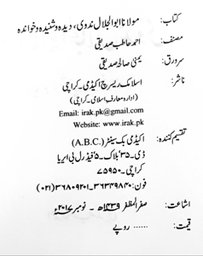 کتاب: مولانا ابوالجلال ندوی، دیدہ و شنیدہ و خواندہ
مصنف: احمد حاطب صدیقی
سرورق: یمنیٰ صالحہ صدیقی
ناشر: اسلامک ریسرچ اکیڈمی۔ کراچی
(ادارہ معارف اسلامی۔ کراچی)
Email: irak.pk@gmail.com
Website: www.irak.pk
تقسیم کنندہ: اکیڈمی بک سینٹر (A.B.C.)
ڈی۔۳۵، بلاک۔۵ فیڈرل بی ایریا
کراچی ۷۵۹۵۰
فون: ۳۶۳۴۹۸۴۰۔ ۳۶۸۰۹۲۰۱ (۰۲۱)
اشاعت: صفر المظفر ۱۴۳۹ھ۔ نومبر ۲۰۱۷ء
قیمت: ...... روپے